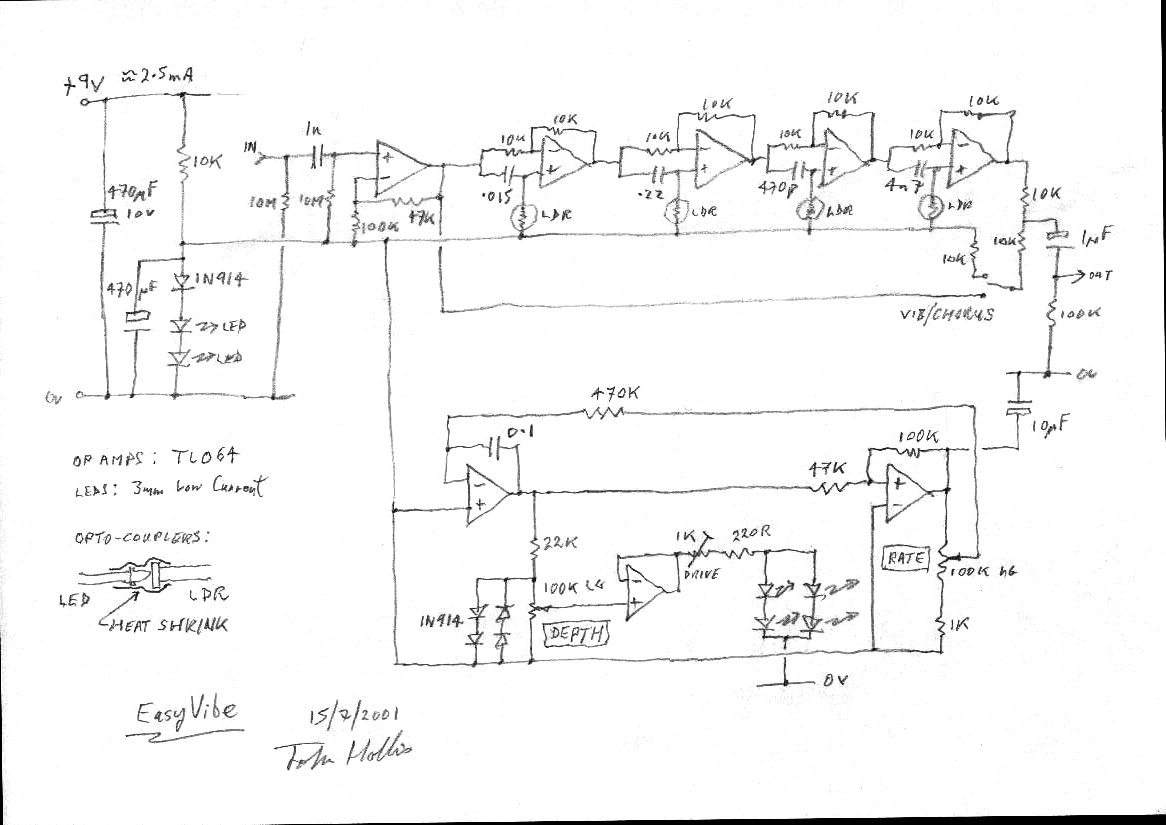 +9V ≈2.5mA
10K
470µF
10V
470µF
1N914
LED
LED
0V
IN
1n
10M
10M
100K
47K
10K
10K
.015
LDR
10K
10K
.22
LDR
10K
10K
470p
LDR
10K
10K
4n7
LDR
10K
10K
10K
1µF
OUT
100K
VIB/CHORUS
0V
10µF
470K
0.1
47K
100K
22K
1N914
100K LG
DEPTH
1K
DRIVE
220R
0V
RATE
100K LG
1K
OP AMPS: TL064
LEDS: 3mm Low Current
OPTO-COUPLERS:
LED
LDR
HEAT SHRINK
EasyVibe
15/7/2001
John Hollis